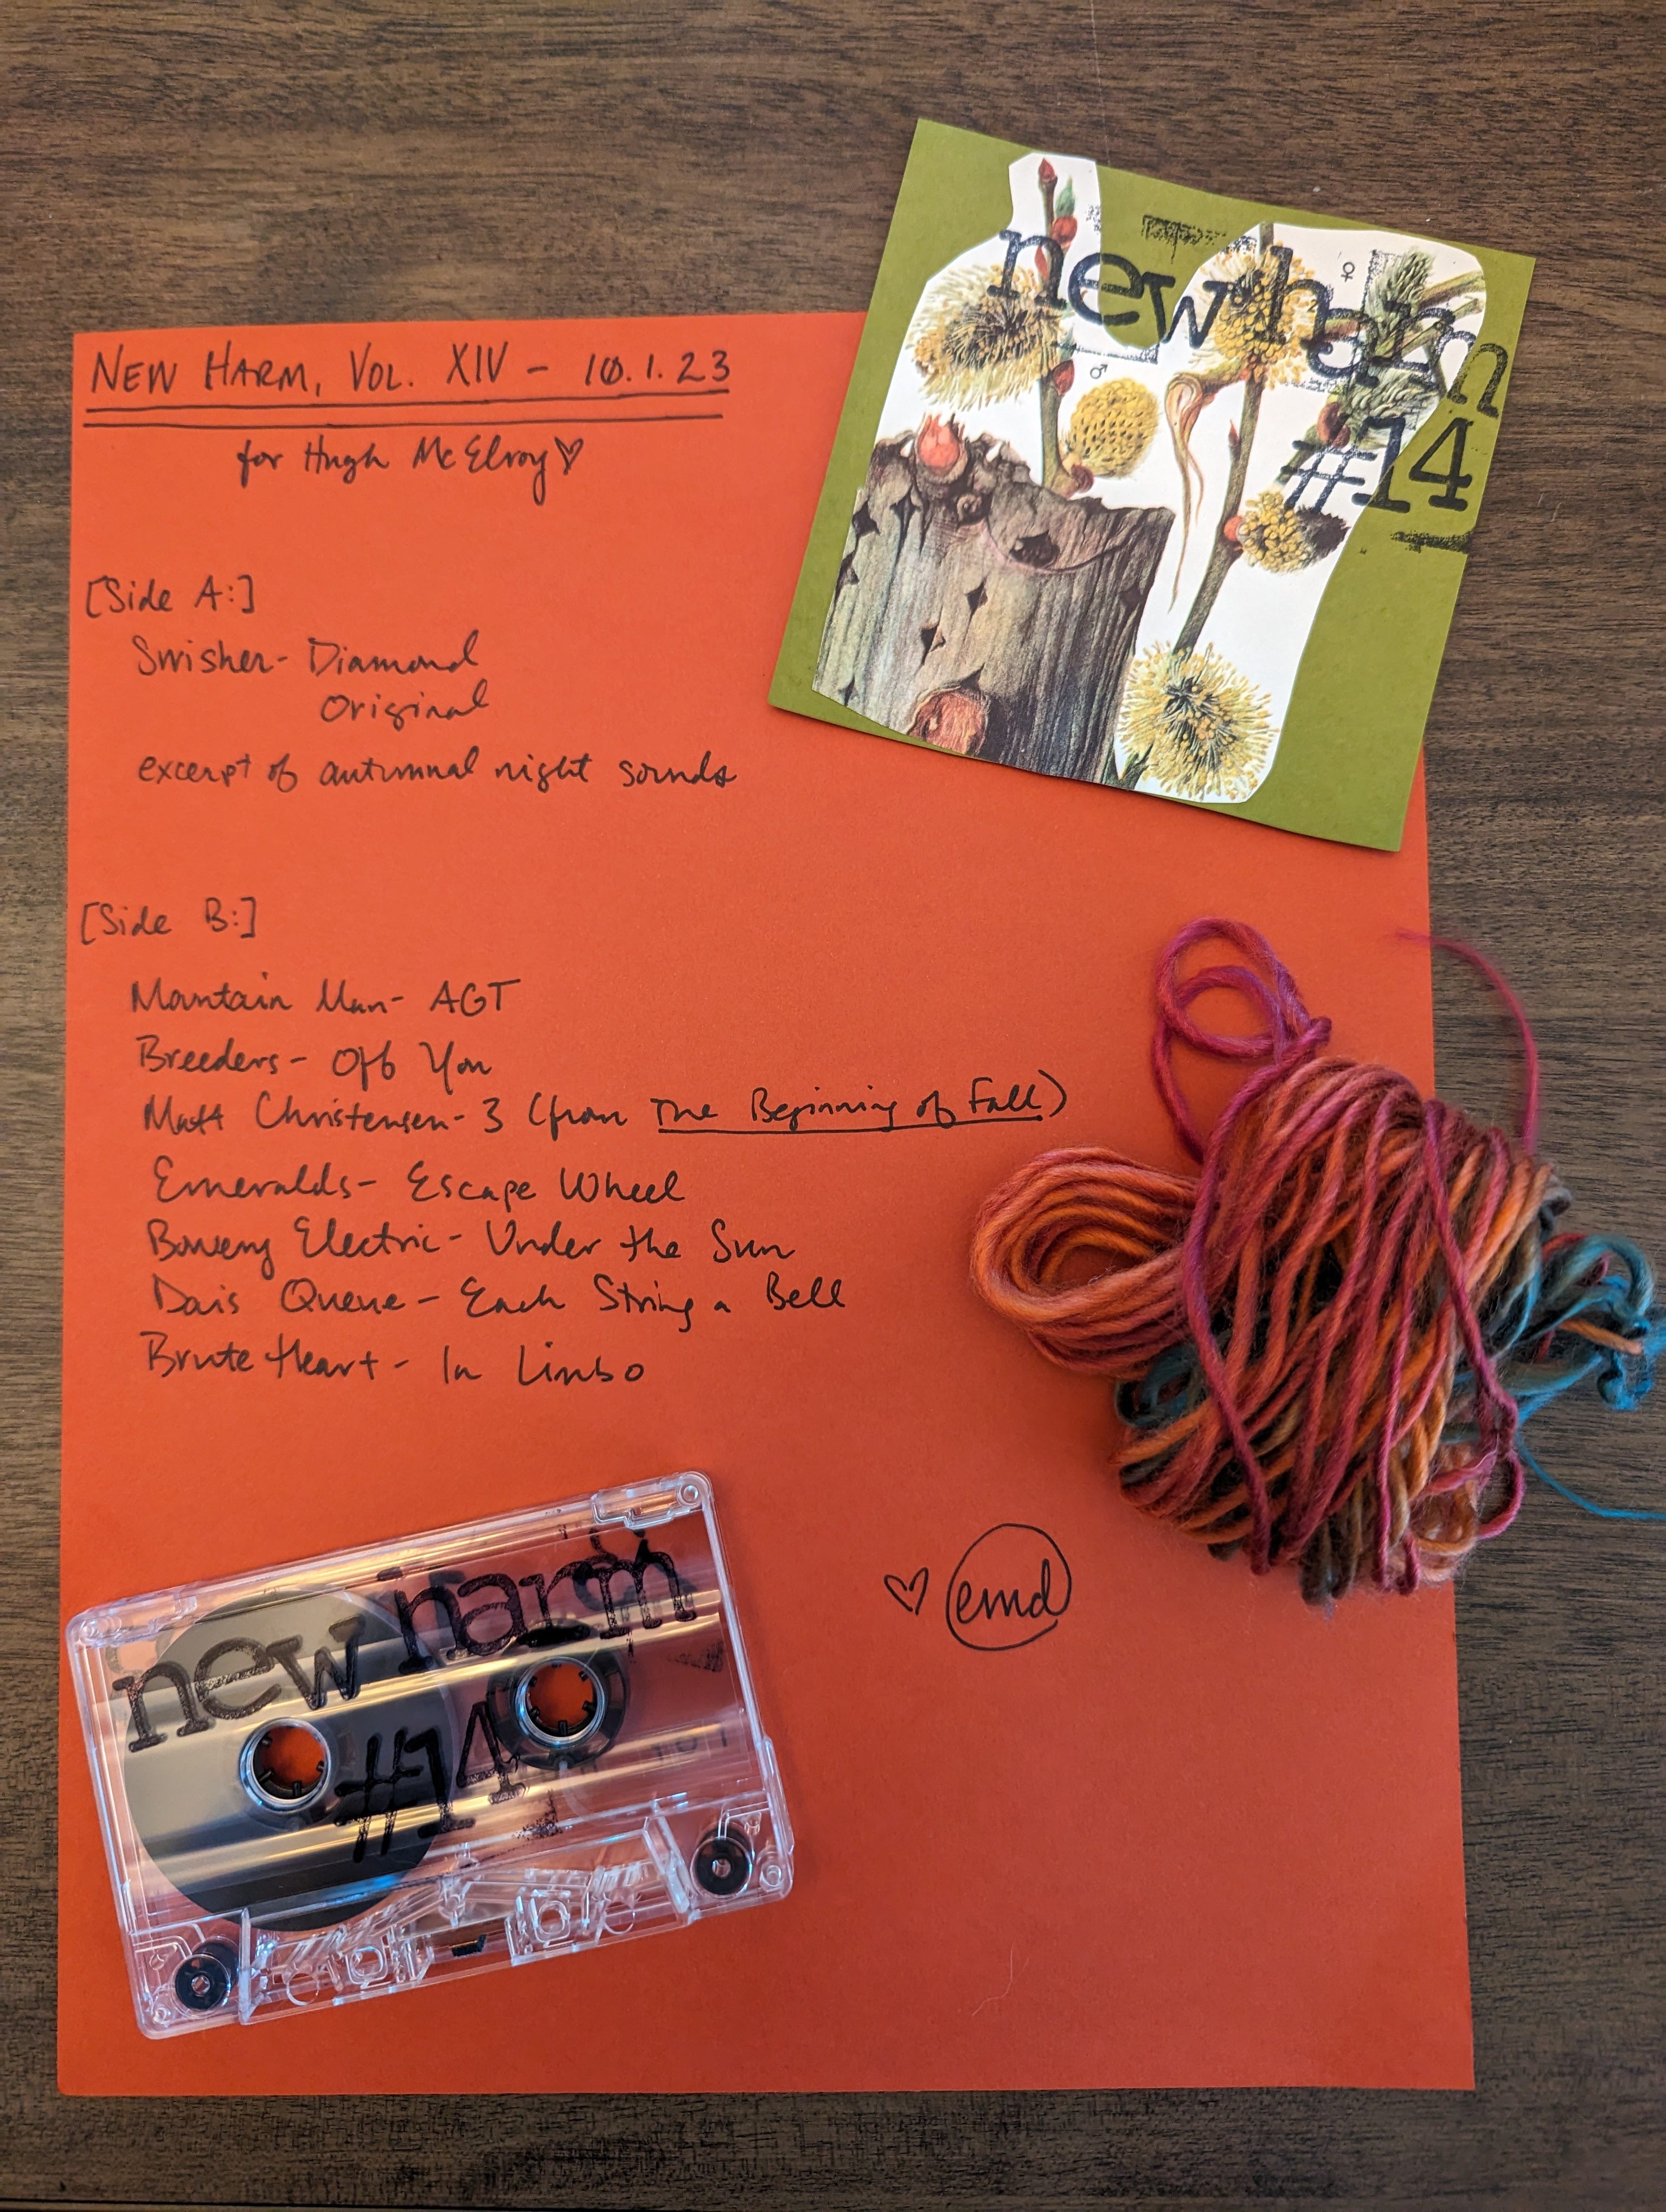 NEW HARM, VOL. XIV - 10.1.23
for Hugh McElroy ♡
[Side A:]
Swisher - Diamond
Original
excerpt of autumnal night sounds
[Side B:]
Mountain Man - AGT
Breeders - Off You
Matt Christensen - 3 (from The Beginning of Fall)
Emeralds - Escape Wheel
Bowery Electric - Under the Sun
Dais Queue - Each String a Bell
Brute Heart - In Limbo
♡ emd
new harm
#14
♀
♂
new harm
#14